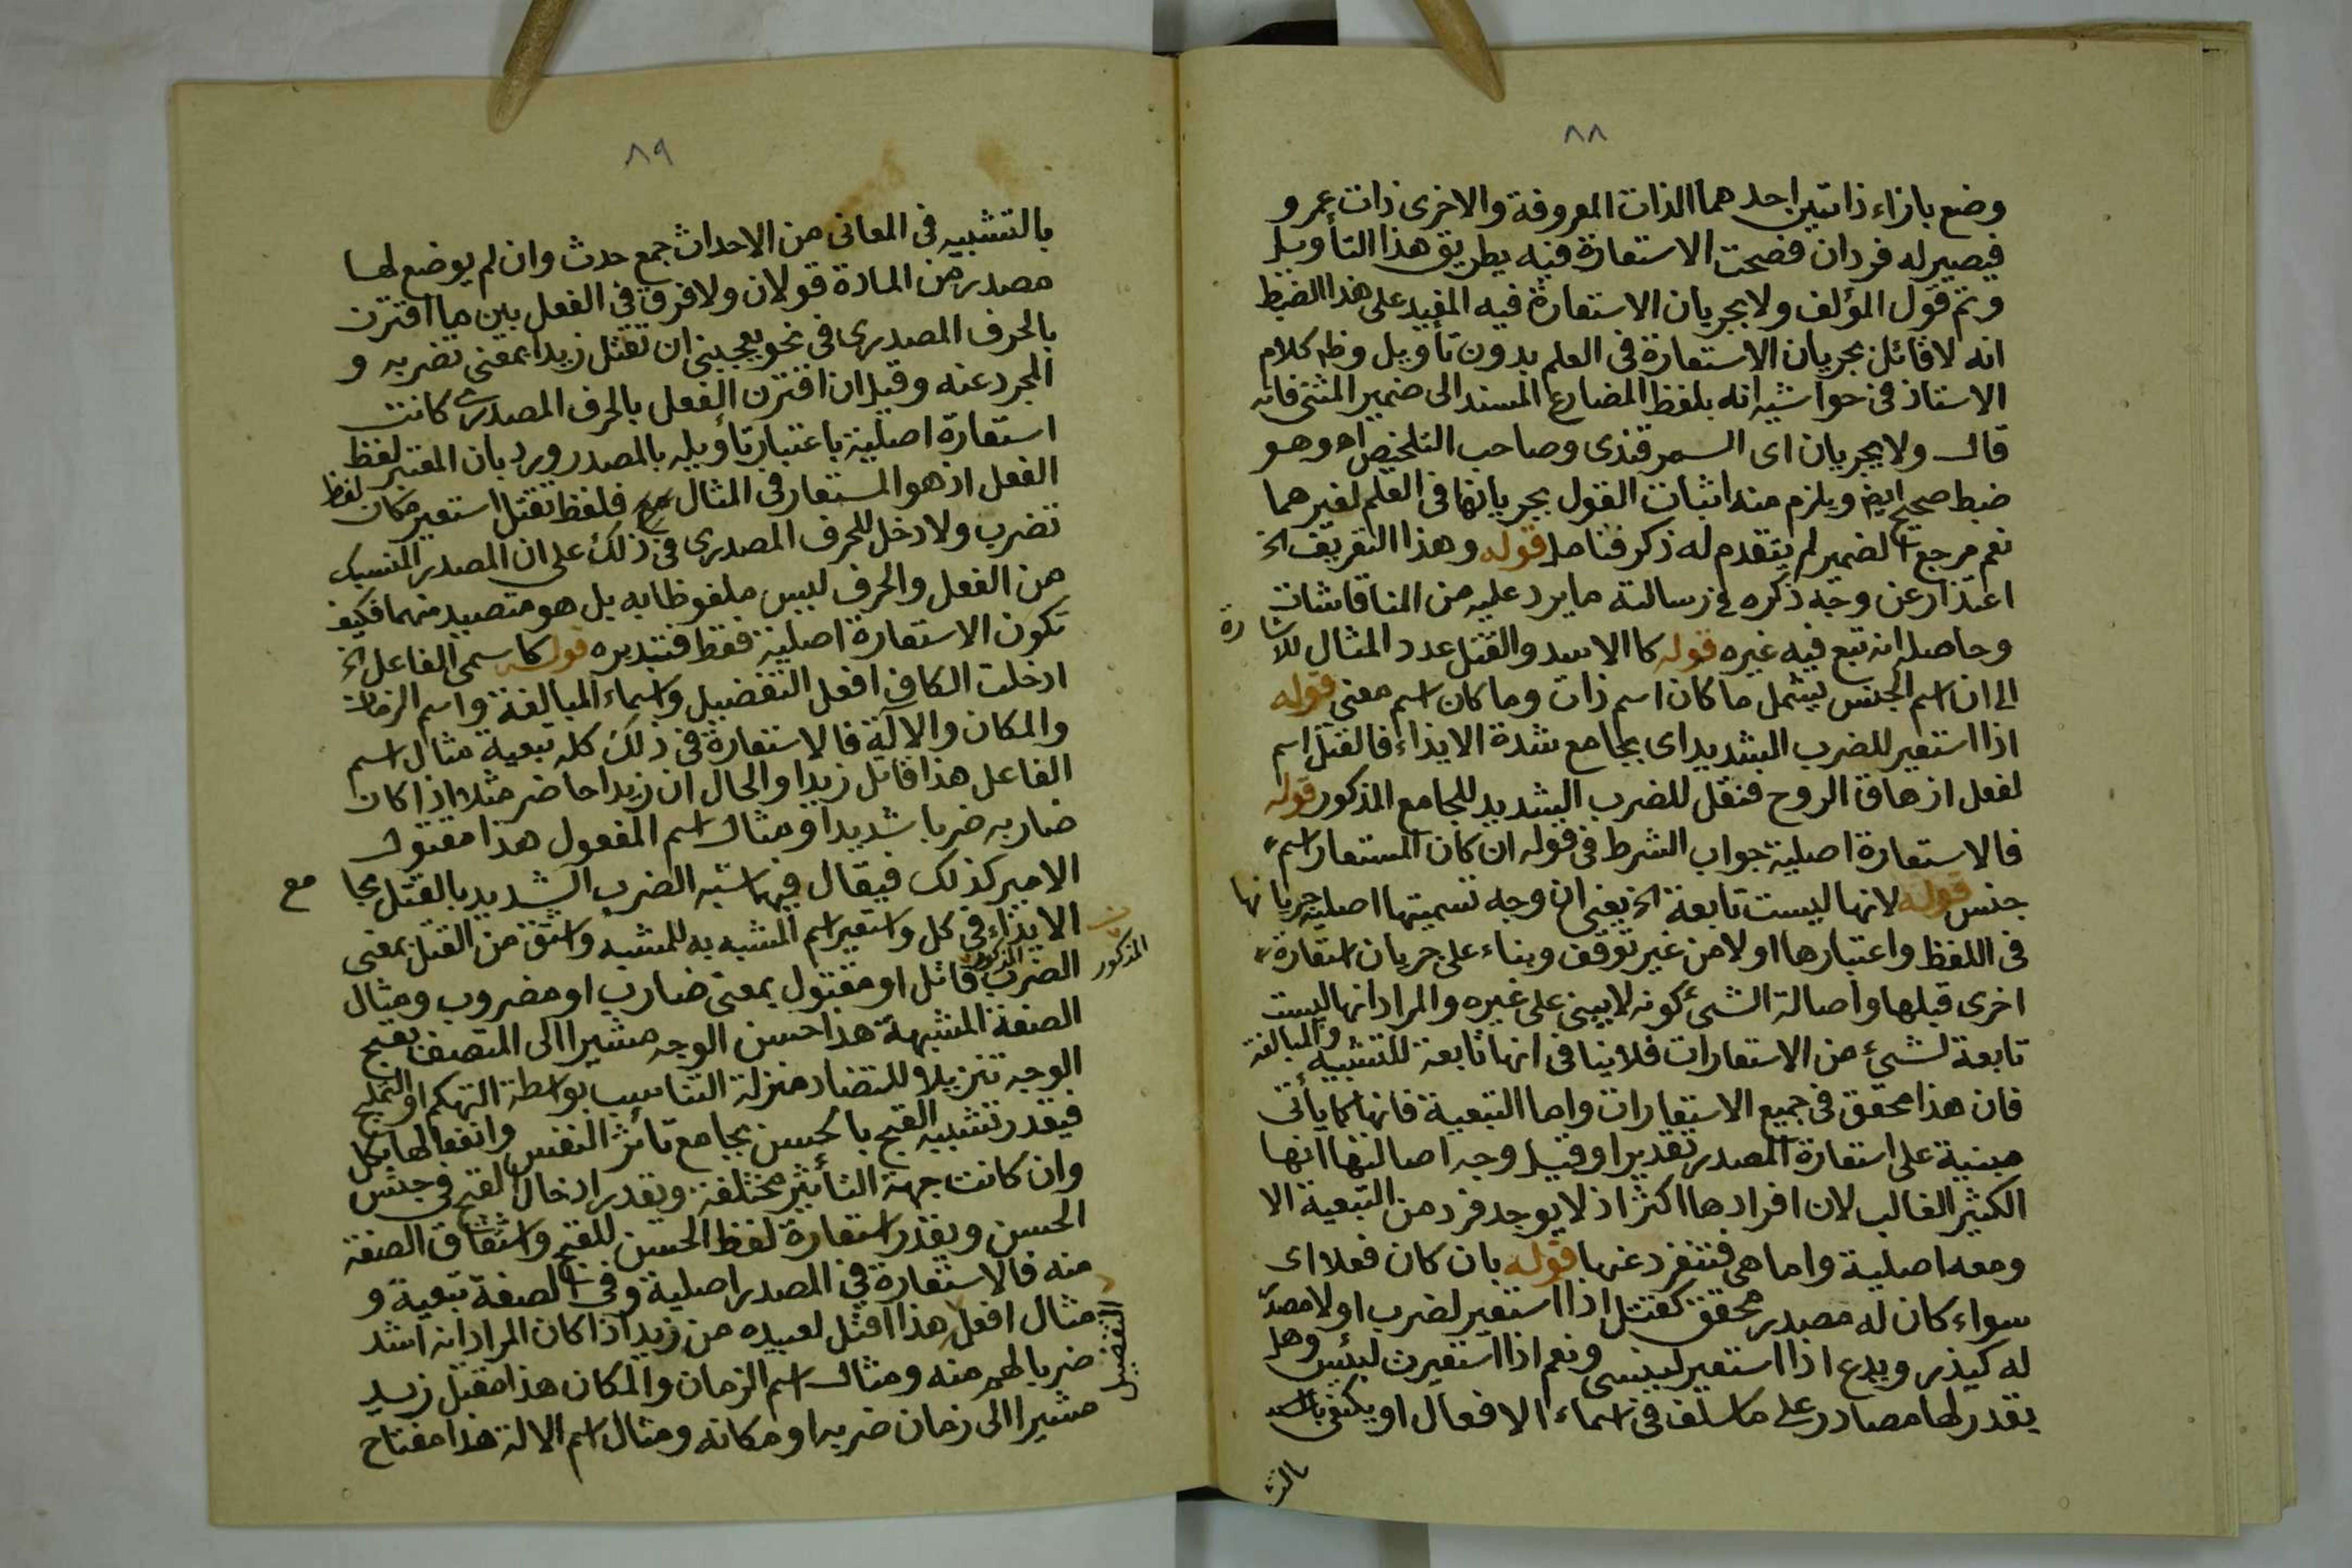 ٨٨
وضع بازاء ذاتين احدهما الذات المعروفة والاخرى ذات عمرو
فيصير له فردان فصحت الاستعارة فيه بطريق هذا التأويل
وثم قول المؤلف ولا بجريان الاستعارة فيه المفيد على هذا الضبط
انه لا قائل بجريان الاستعارة في العلم بدون تأويل وظ كلام
الاستاذ في حواشيه انه بلفظ المضارع المسند الى ضمير المثنى فانه
قال ولا يجريان اى السمرقندى وصاحب التلخيص اه وهو
ضبط صحيح ايض ويلزم منه اثبات القول بجريانها في العلم لغيرهما
نعم مرجع الضمير لم يتقدم له ذكر فتامل قوله وهذا التعريف الخ
اعتذار عن وجه ذكره في رسالته ما يرد عليه من المناقاشات
وحاصله انه تبع فيه غيره قوله كا الاسد والقتل عدد المثال للاشارة
الى ان اسم الجنس يشمل ما كان اسم ذات وما كان اسم معنى قوله
اذا استعير للضرب الشديد اى بجامع شدة الايذاء فالقتل اسم
لفعل ازهاق الروح فنقل للضرب الشديد للجامع المذكور قوله
فالاستعارة اصلية جواب الشرط في قوله ان كان المستعار اسم
جنس قوله لانها ليست تابعة الخ يعني ان وجه تسميتها اصلية جريانها
في اللفظ واعتبارها اولا من غير توقف وبناء على جريان استعارة
اخرى قبلها واصالة الشئ كونه لا يبنى على غيره والمراد انها ليست
تابعة لشئ من الاستعارات فلا ينافى انها تابعة للتشبيه والمبالغة
فان هذا محقق في جميع الاستعارات واما التبعية فانها كما يأتى
مبنية على استعارة المصدر تقديرا وقيل وجه اصالتها انها
الكثير الغالب لان افرادها اكثر اذ لا يوجد فرد من التبعية الا
ومعه اصلية واما هى فتنفرد عنها قوله بان كان فعلا اى
سواء كان له مصدر محقق كقتل اذا استعير لضرب اولا مصد
له كيذر ويدع اذا استعير لينسى ونعم اذا استعيرت لبئس وهل
يقدر لها مصادر على ما سلف في اسماء الافعال او يكتفى
بالتش
٨٩
بالتشبيه في المعانى من الاحداث جمع حدث وان لم يوضع لها
مصدر من المادة قولان ولا فرق في الفعل بين ما اقترن
بالحرف المصدرى في نحو يعجبنى ان تقتل زيدا بمعنى تضربه و
المجرد عنه وقيل ان اقترن الفعل بالحرف المصدرى كانت
استعارة اصلية باعتبار تأويله بالمصدر ورد بان المعتبر لفظ
الفعل اذ هو المستعار في المثال فلفظ تقتل استعير مكان لفظ
تضرب ولا دخل للحرف المصدرى في ذلك على ان المصدر المنسبك
من الفعل والحرف ليس ملفوظا به بل هو متصيد منهما فكيف
تكون الاستعارة اصلية فقط فتدبره قوله كاسمى الفاعل الخ
ادخلت الكاف افعل التفضيل واسماء المبالغة واسم الزمان
والمكان والالة فالاستعارة في ذلك كله تبعية مثال اسم
الفاعل هذا قاتل زيدا والحال ان زيدا حاضر مثلا اذا كان
ضاربه ضربا شديدا ومثال اسم المفعول هذا مقتول
الامير كذلك فيقال فيهما شبه الضرب الشديد بالقتل بجامع
الايذاء في كل واستعير اسم المشبه به للمشبه واشتق من القتل بمعنى
الضرب المذكور قاتل او مقتول بمعنى ضارب او مضروب ومثال
المذكور
الصفة المشبهة هذا حسن الوجه مشيرا الى المتصف بقبح
الوجه تنزيلا للتضاد منزلة التناسب بواسطة التهكم او التمليح
فيقدر تشبيه القبح بالحسن بجامع تأثر النفس وانفعالها بكل
وان كانت جهة التأثير مختلفة ويقدر ادخال القبح في جنس
الحسن ويقدر استعارة لفظ الحسن للقبح واشتقاق الصفة
منه فالاستعارة في المصدر اصلية وفي الصفة تبعية و
مثال افعل هذا اقتل لعبيده من زيد اذا كان المراد انه اشد
التفضيل
ضربا لهم منه ومثال اسم الزمان والمكان هذا مقتل زيد
مشيرا الى زمان ضربه او مكانه ومثال اسم الالة هذا مفتاح